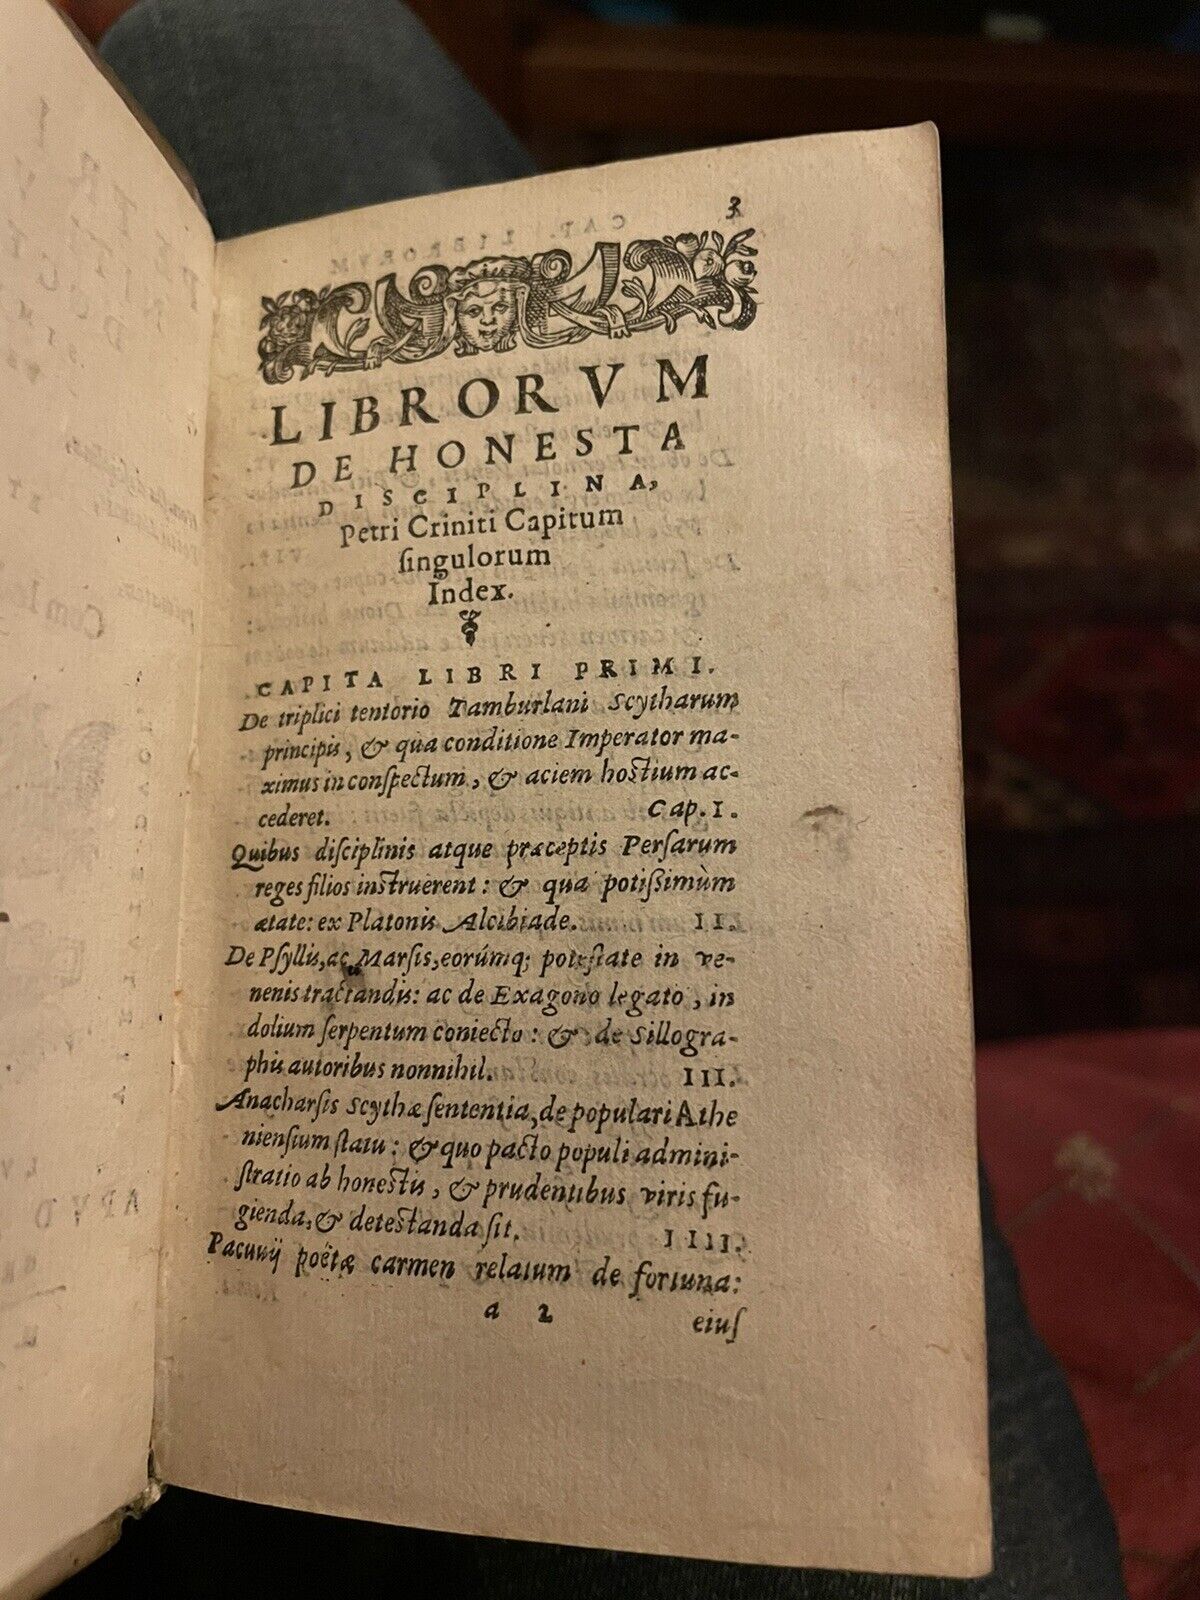 3
LIBRORVM
DE HONESTA
DISCIPLINA,
Petri Criniti Capitum
ſingulorum
Index.
CAPITA LIBRI PRIMI.
De triplici tentorio Tamburlani Scytharum
principis, & qua conditione Imperator ma-
ximus in conſpectum, & aciem hostium ac-
cederet. Cap. I.
Quibus diſciplinis atque præceptis Perſarum
reges filios instruerent: & qua potiſſimùm
ætate: ex Platonis Alcibiade. II.
De Pſyllis, ac Marſis, eorúmq; poteſtate in ve-
nenis tractandis: ac de Exagono legato, in
dolium ſerpentum coniecto: & de Sillogra-
phis autoribus nonnihil. III.
Anacharſis Scythæ ſententia, de populari Athe
nienſium ſtatu: & quo pacto populi admini-
ſtratio ab honestis, & prudentibus viris fu-
gienda, & detestanda ſit. IIII.
Pacuuij poëtæ carmen relatum de fortuna:
a 2 eiuſ